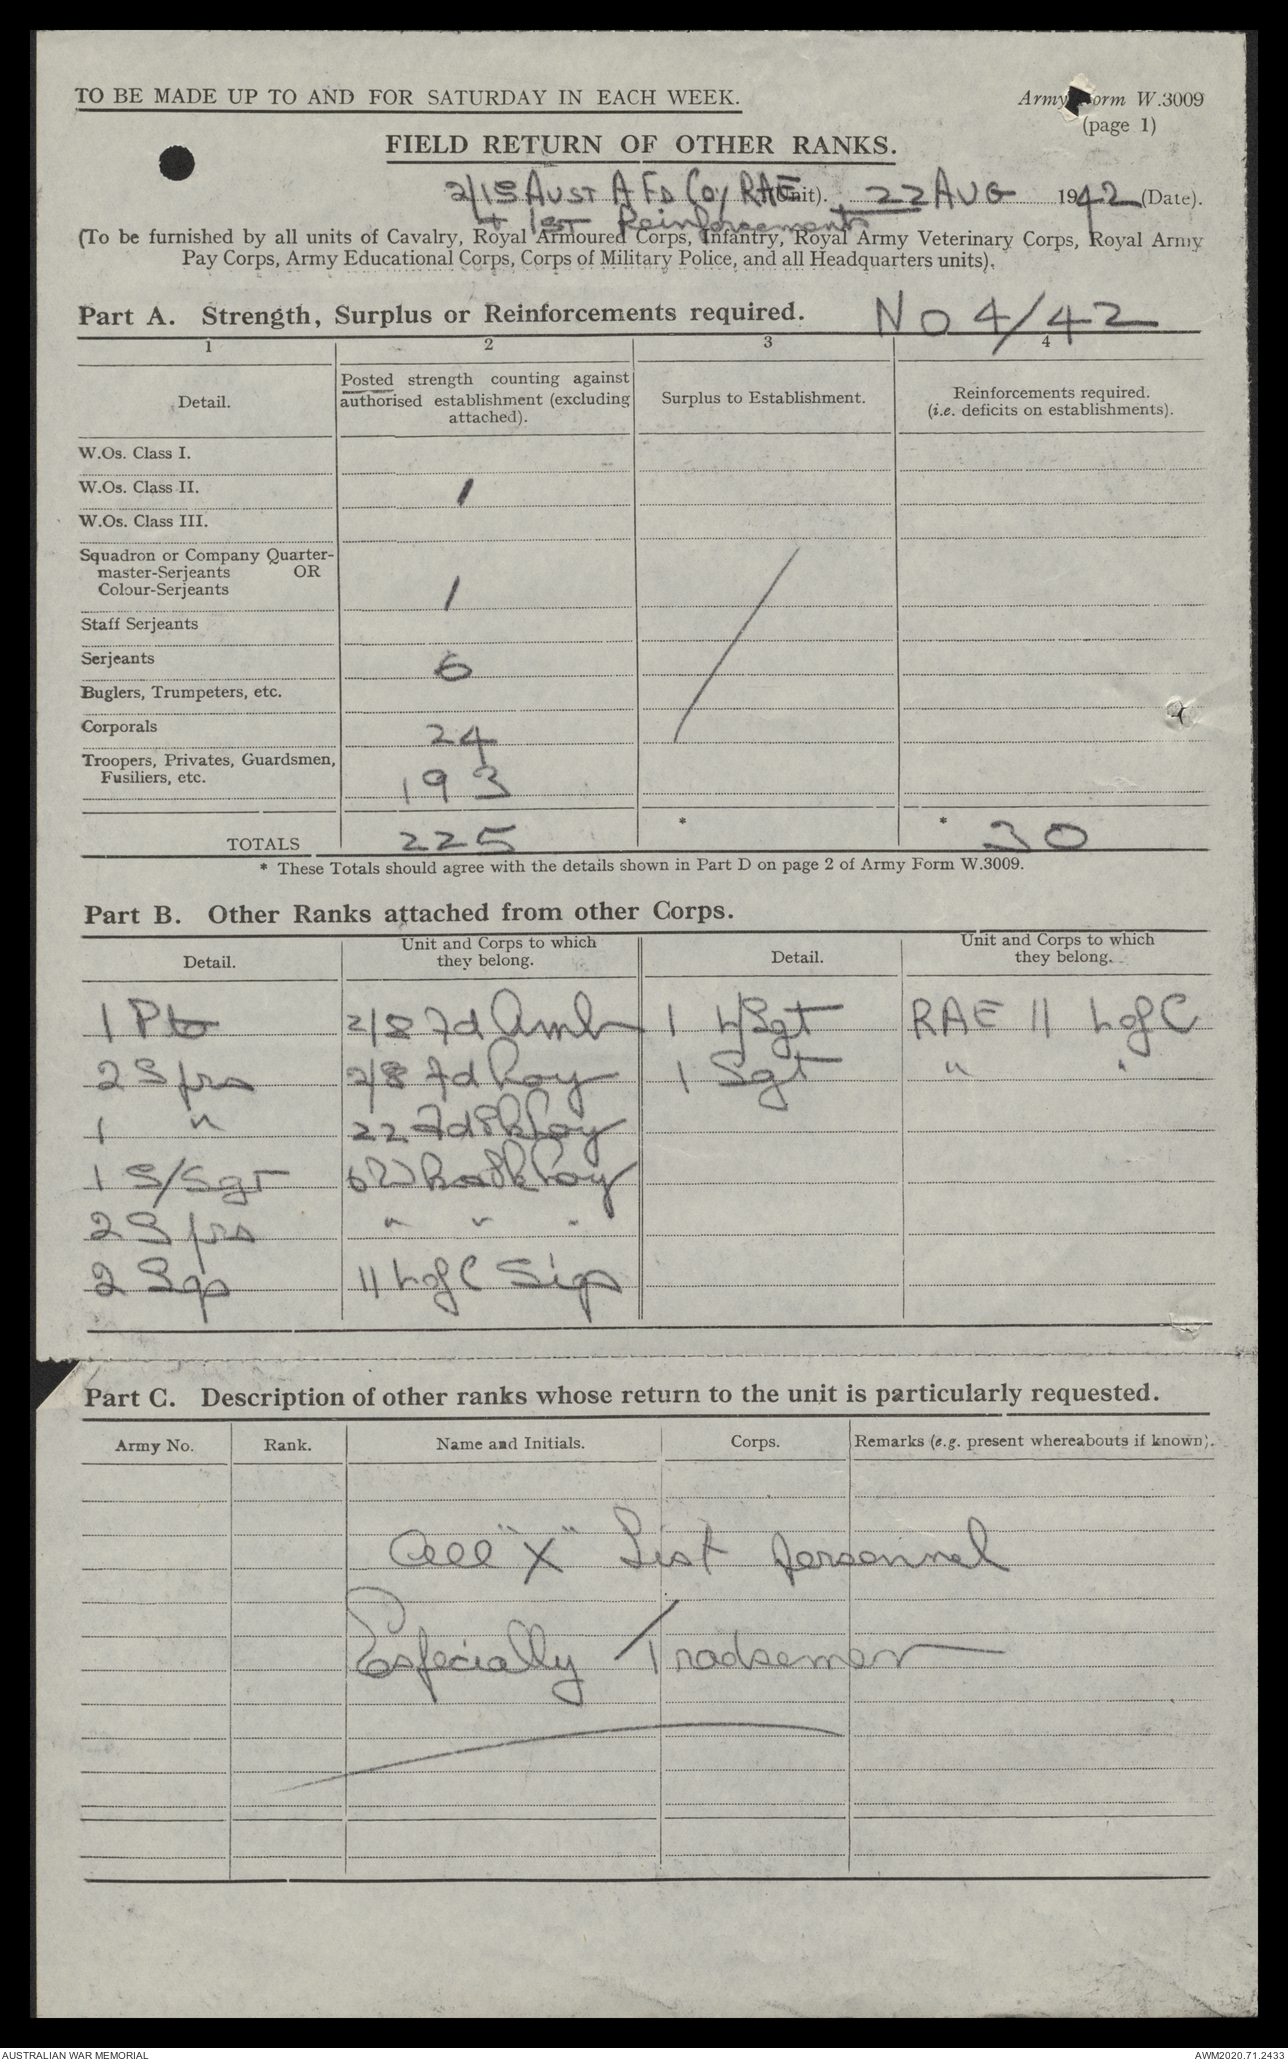 TO BE MADE UP TO AND FOR SATURDAY IN EACH WEEK.
Army Form W.3009
(page 1)
FIELD RETURN OF OTHER RANKS.
2/15 AUST A FD Coy RAE (Unit). 22 AUG 1942 (Date).
+ 1st Reinforcements
(To be furnished by all units of Cavalry, Royal Armoured Corps, Infantry, Royal Army Veterinary Corps, Royal Army
Pay Corps, Army Educational Corps, Corps of Military Police, and all Headquarters units).
Part A. Strength, Surplus or Reinforcements required. No 4/42
1 2 3 4
Detail.
Posted strength counting against
authorised establishment (excluding
attached).
Surplus to Establishment.
Reinforcements required.
(i.e. deficits on establishments).
W.Os. Class I.
W.Os. Class II. 1
W.Os. Class III.
Squadron or Company Quarter-
master-Serjeants OR
Colour-Serjeants 1
Staff Serjeants
Serjeants 6
Buglers, Trumpeters, etc.
Corporals 24
Troopers, Privates, Guardsmen,
Fusiliers, etc. 193
TOTALS 225 * * 30
* These Totals should agree with the details shown in Part D on page 2 of Army Form W.3009.
Part B. Other Ranks attached from other Corps.
Detail. Unit and Corps to which they belong. Detail. Unit and Corps to which they belong.
1 Pte 2/8 Fd Amb 1 L/Sgt RAE 11 L of C
2 Sprs 2/8 Fd Coy 1 Sgt " "
1 " 22 Fd Pk Coy
1 S/Sgt 6 W Coy
2 Sprs " " "
2 Sigs 11 L of C Sigs
Part C. Description of other ranks whose return to the unit is particularly requested.
Army No. Rank. Name and Initials. Corps. Remarks (e.g. present whereabouts if known).
All "X" List personnel
Especially Tradsemen
AUSTRALIAN WAR MEMORIAL
AWM2020.71.2433